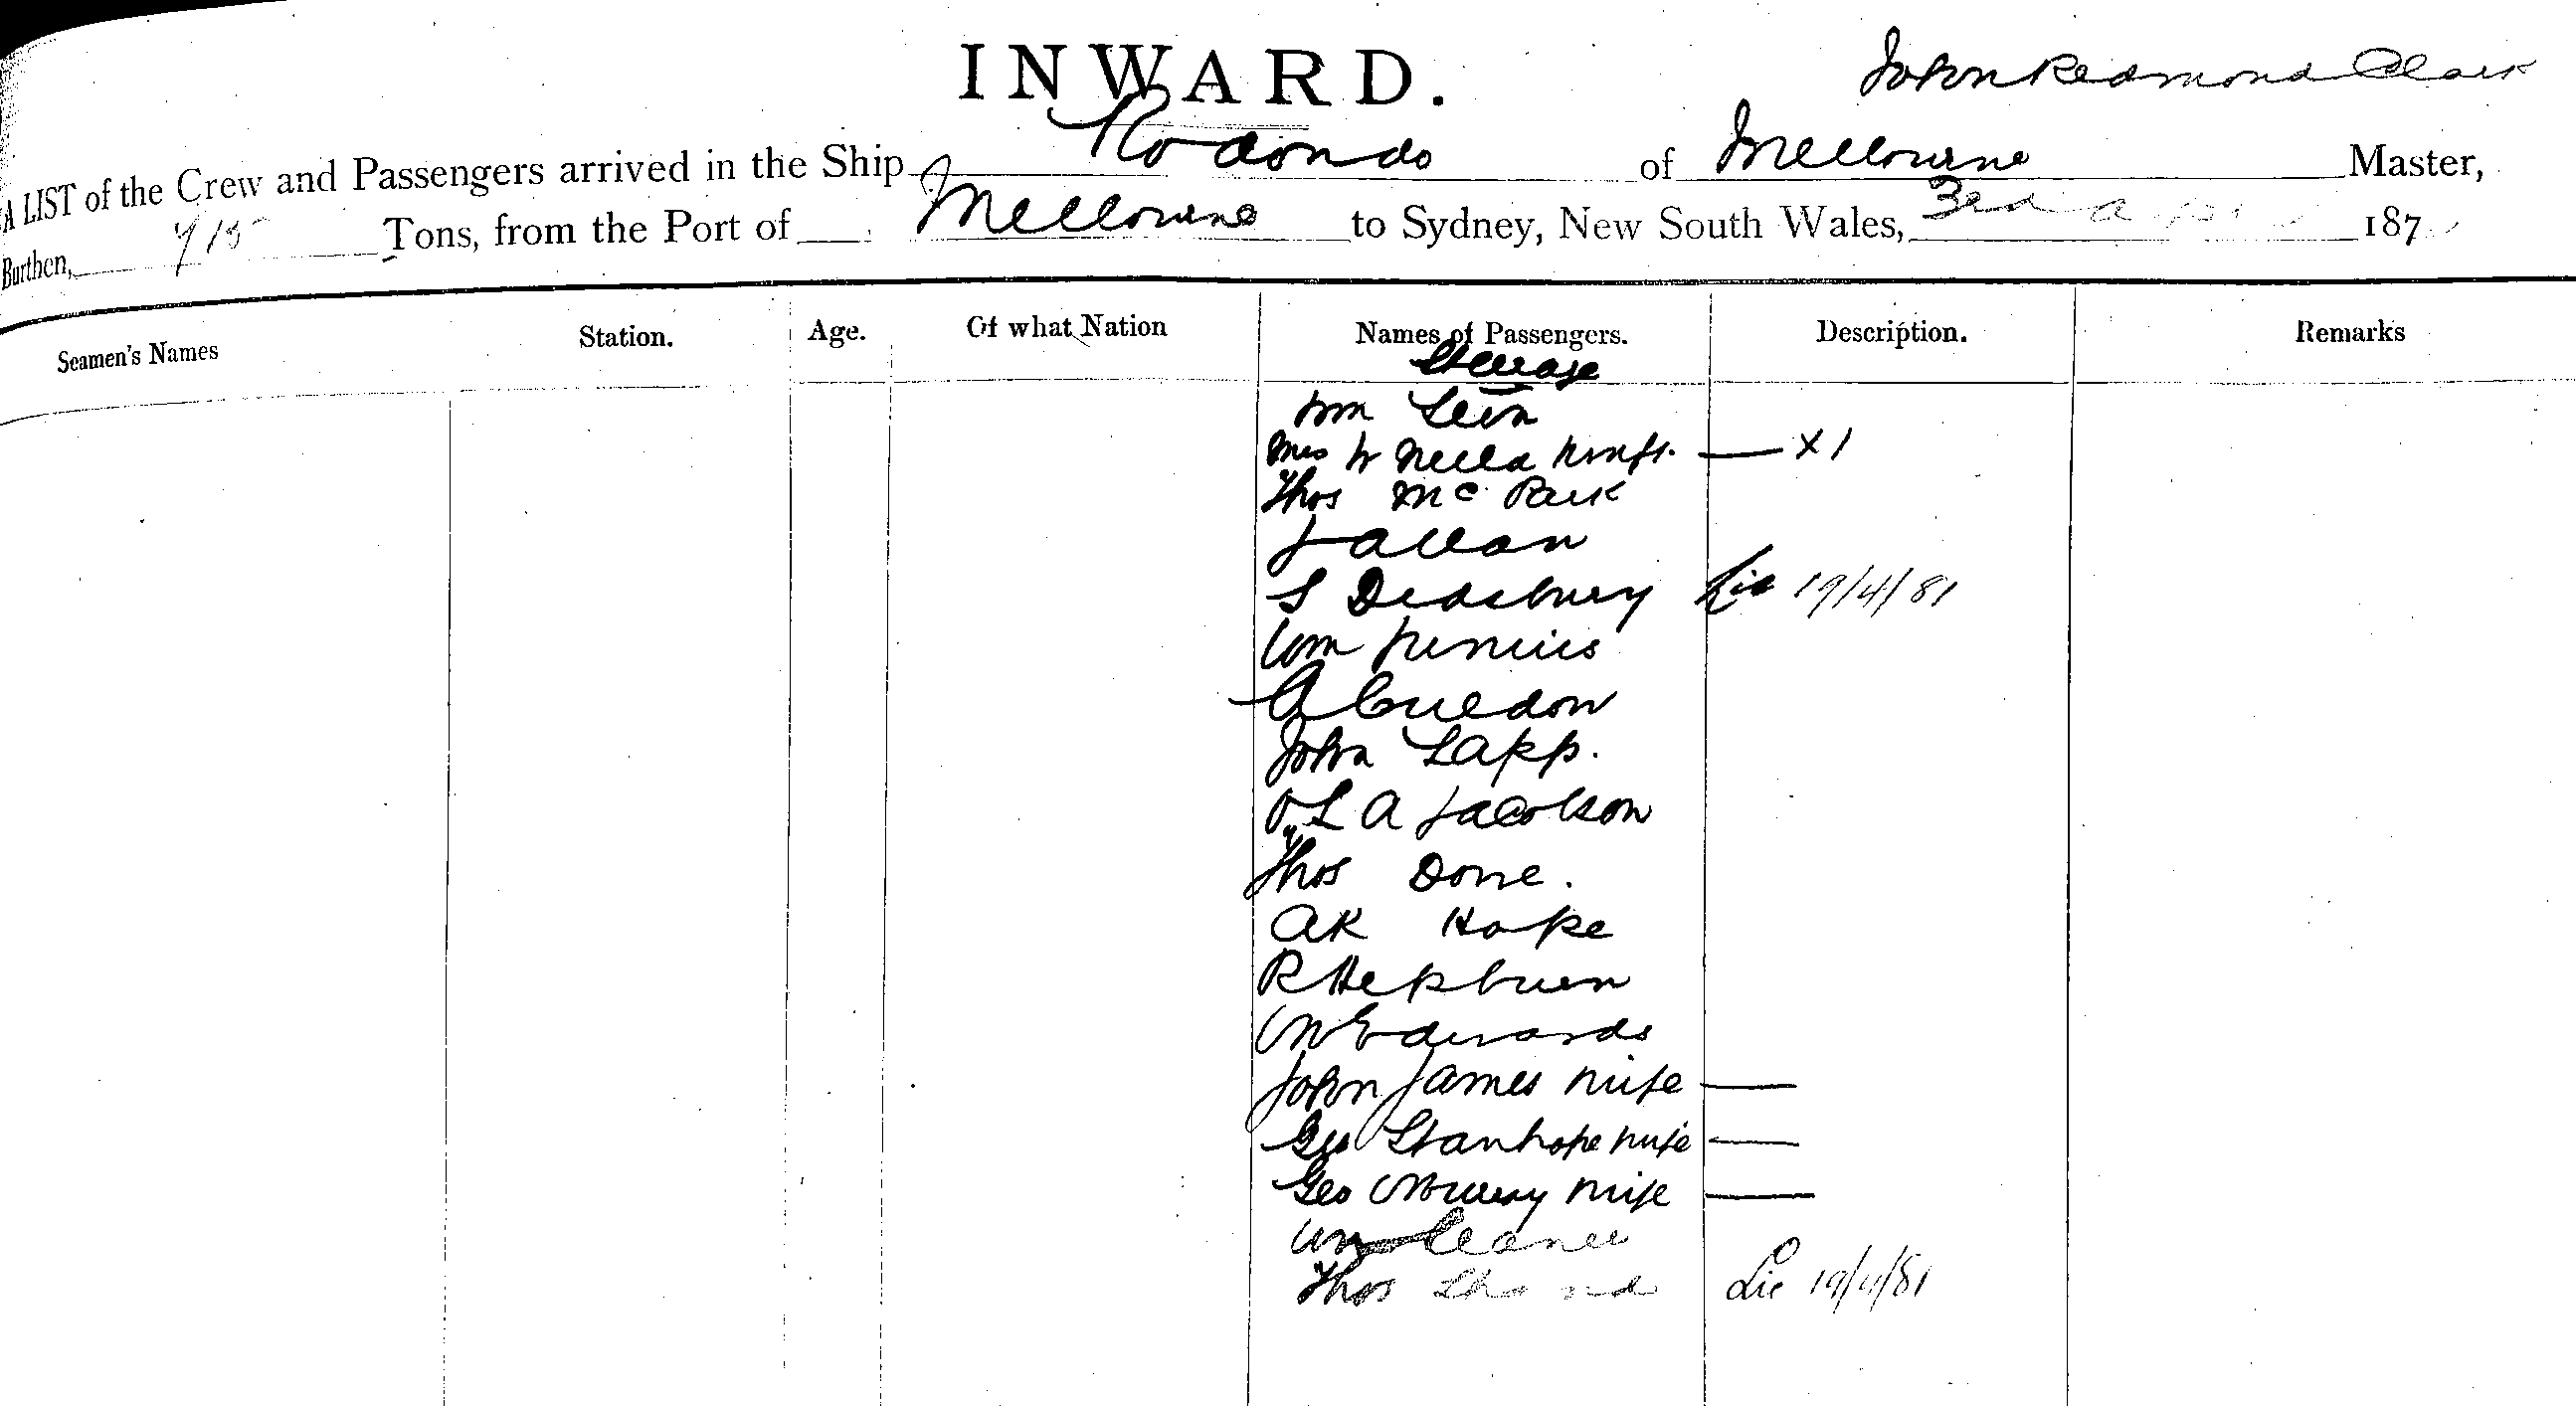 INWARD.
John Redmond Clark
A LIST of the Crew and Passengers arrived in the Ship Rodondo of Melbourne Master,
Burthen, 715 Tons, from the Port of Melbourne to Sydney, New South Wales, 3rd 187
Seamen's Names Station. Age. Of what Nation Names of Passengers. Description. Remarks
Steerage
Wm
Mrs W — X 1
Thos Mc
J Allan
S Didsbury Lic 19/4/81
Wm
A
John Lapp.
L A Jacobson
Thos Done.
A R Hope
R Hepburn
W Edwards
John James Wife —
Geo Stanhope Wife —
Geo Wife —
Wm
Thos Lic 19/4/81